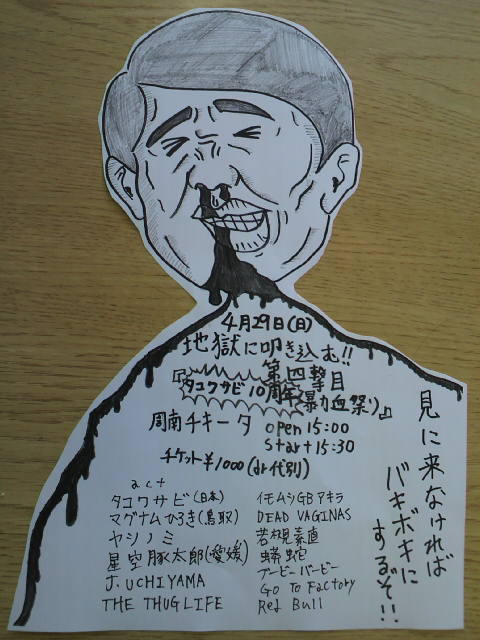 4月29日(日)
地獄に叩き込む!!
第四撃目
『タコワサビ10周年(暴力血祭り)』
周南チキータ open 15:00
start 15:30
チケット¥1000(dr代別)
act
タコワサビ(日本)
マグナムひろき(鳥取)
ヤシノミ
星空豚太郎(愛媛)
J.UCHIYAMA
THE THUGLIFE
イモムシGBアキラ
DEAD VAGINAS
若槻素直
蟒蛇
ブービーバービー
Go To Factory
Red Bull
見に来なければ
バキボキに
するぞ!!